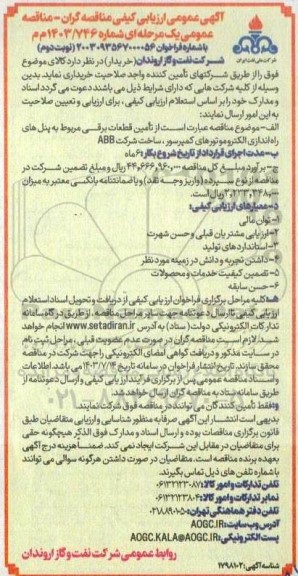 آگهی عمومی ارزیابی کیفی مناقصه گران - مناقصه
عمومی یک مرحله ای شماره ۱۴۰۳/۷۴۶م م
با شماره فراخوان ۲۰۰۳۰۹۳۵۶۷۰۰۰۰۵۶ (نوبت دوم)
شرکت نفت و گاز اروندان (خریدار) در نظر دارد کالای موضوع
فوق را از طریق شرکتهای تأمین کننده واجد صلاحیت خریداری نماید. بدین
وسیله از کلیه شرکت هایی که دارای شرایط ذیل می باشند دعوت می گردد اسناد
و مدارک خود را بر اساس استعلام ارزیابی کیفی، برای ارزیابی و تعیین صلاحیت
به این امور ارسال نمایند:
الف- موضوع مناقصه عبارت است از تأمین قطعات برقی مربوط به پنل های
راه اندازی الکتروموتورهای کمپرسور، ساخت شرکت ABB
ب- مدت اجرای قرارداد از تاریخ شروع بکار: ۶ ماه
ج- برآورد مبلغ کل مناقصه ۴۴,۶۶۶,۹۶۰,۰۰۰ ریال و مبلغ تضمین شرکت در
مناقصه از نوع سپرده (واریز وجه نقد) و یا ضمانتنامه بانکی معتبر به میزان
۲,۲۳۳,۳۴۸,۰۰۰ ریال است.
د- معیارهای ارزیابی کیفی:
۱- توان مالی
۲- ارزیابی مشتریان قبلی و حسن شهرت
۳- استانداردهای تولید
۴- داشتن تجربه و دانش در زمینه مورد نظر
۵- تضمین کیفیت خدمات و محصولات
۶- حسن سابقه
ه- کلیه مراحل برگزاری فراخوان ارزیابی کیفی از دریافت و تحویل اسناد استعلام
ارزیابی کیفی تا ارسال دعوتنامه جهت سایر مراحل مناقصه، از طریق درگاه سامانه
تدارکات الکترونیکی دولت (ستاد) به آدرس www.setadiran.ir انجام خواهد
شد. لازم است مناقصه گران در صورت عدم عضویت قبلی، مراحل ثبت نام
در سایت مذکور و دریافت گواهی امضای الکترونیکی را جهت شرکت در مناقصه
محقق سازند. تاریخ انتشار فراخوان در سامانه تاریخ ۱۴۰۳/۷/۱۴ می باشد. اطلاعات
و اسناد مناقصه عمومی پس از برگزاری فرآیند ارزیابی کیفی و ارسال دعوتنامه از
طریق سامانه ستاد به مناقصه گران ارسال خواهد شد.
و- فقط تأمین کنندگان می توانند در مناقصه فوق شرکت نمایند.
بدیهی است انتشار این آگهی صرفا به منظور شناسایی و ارزیابی متقاضیان طبق
قانون برگزاری مناقصات بوده و ارسال اسناد و مدارک فوق الذکر هیچگونه حقی
برای متقاضیان در مقابل این شرکت ایجاد نمی کند. ضمنا هزینه درج آگهی
بعهده برنده مناقصه است. متقاضیان در صورت داشتن هرگونه سوالی می توانند
با شماره تلفن های ذیل تماس بگیرند.
تلفن تدارکات و امور کالا:
نمابر تدارکات و امور کالا:
تلفن دفتر هماهنگی تهران:
آدرس وب سایت: AOGC.IR
پست الکترونیکی: AOGC.KALA@AOGC.IR
روابط عمومی شرکت نفت و گاز اروندان
شناسه آگهی: ۱۷۹۸۱۰۲